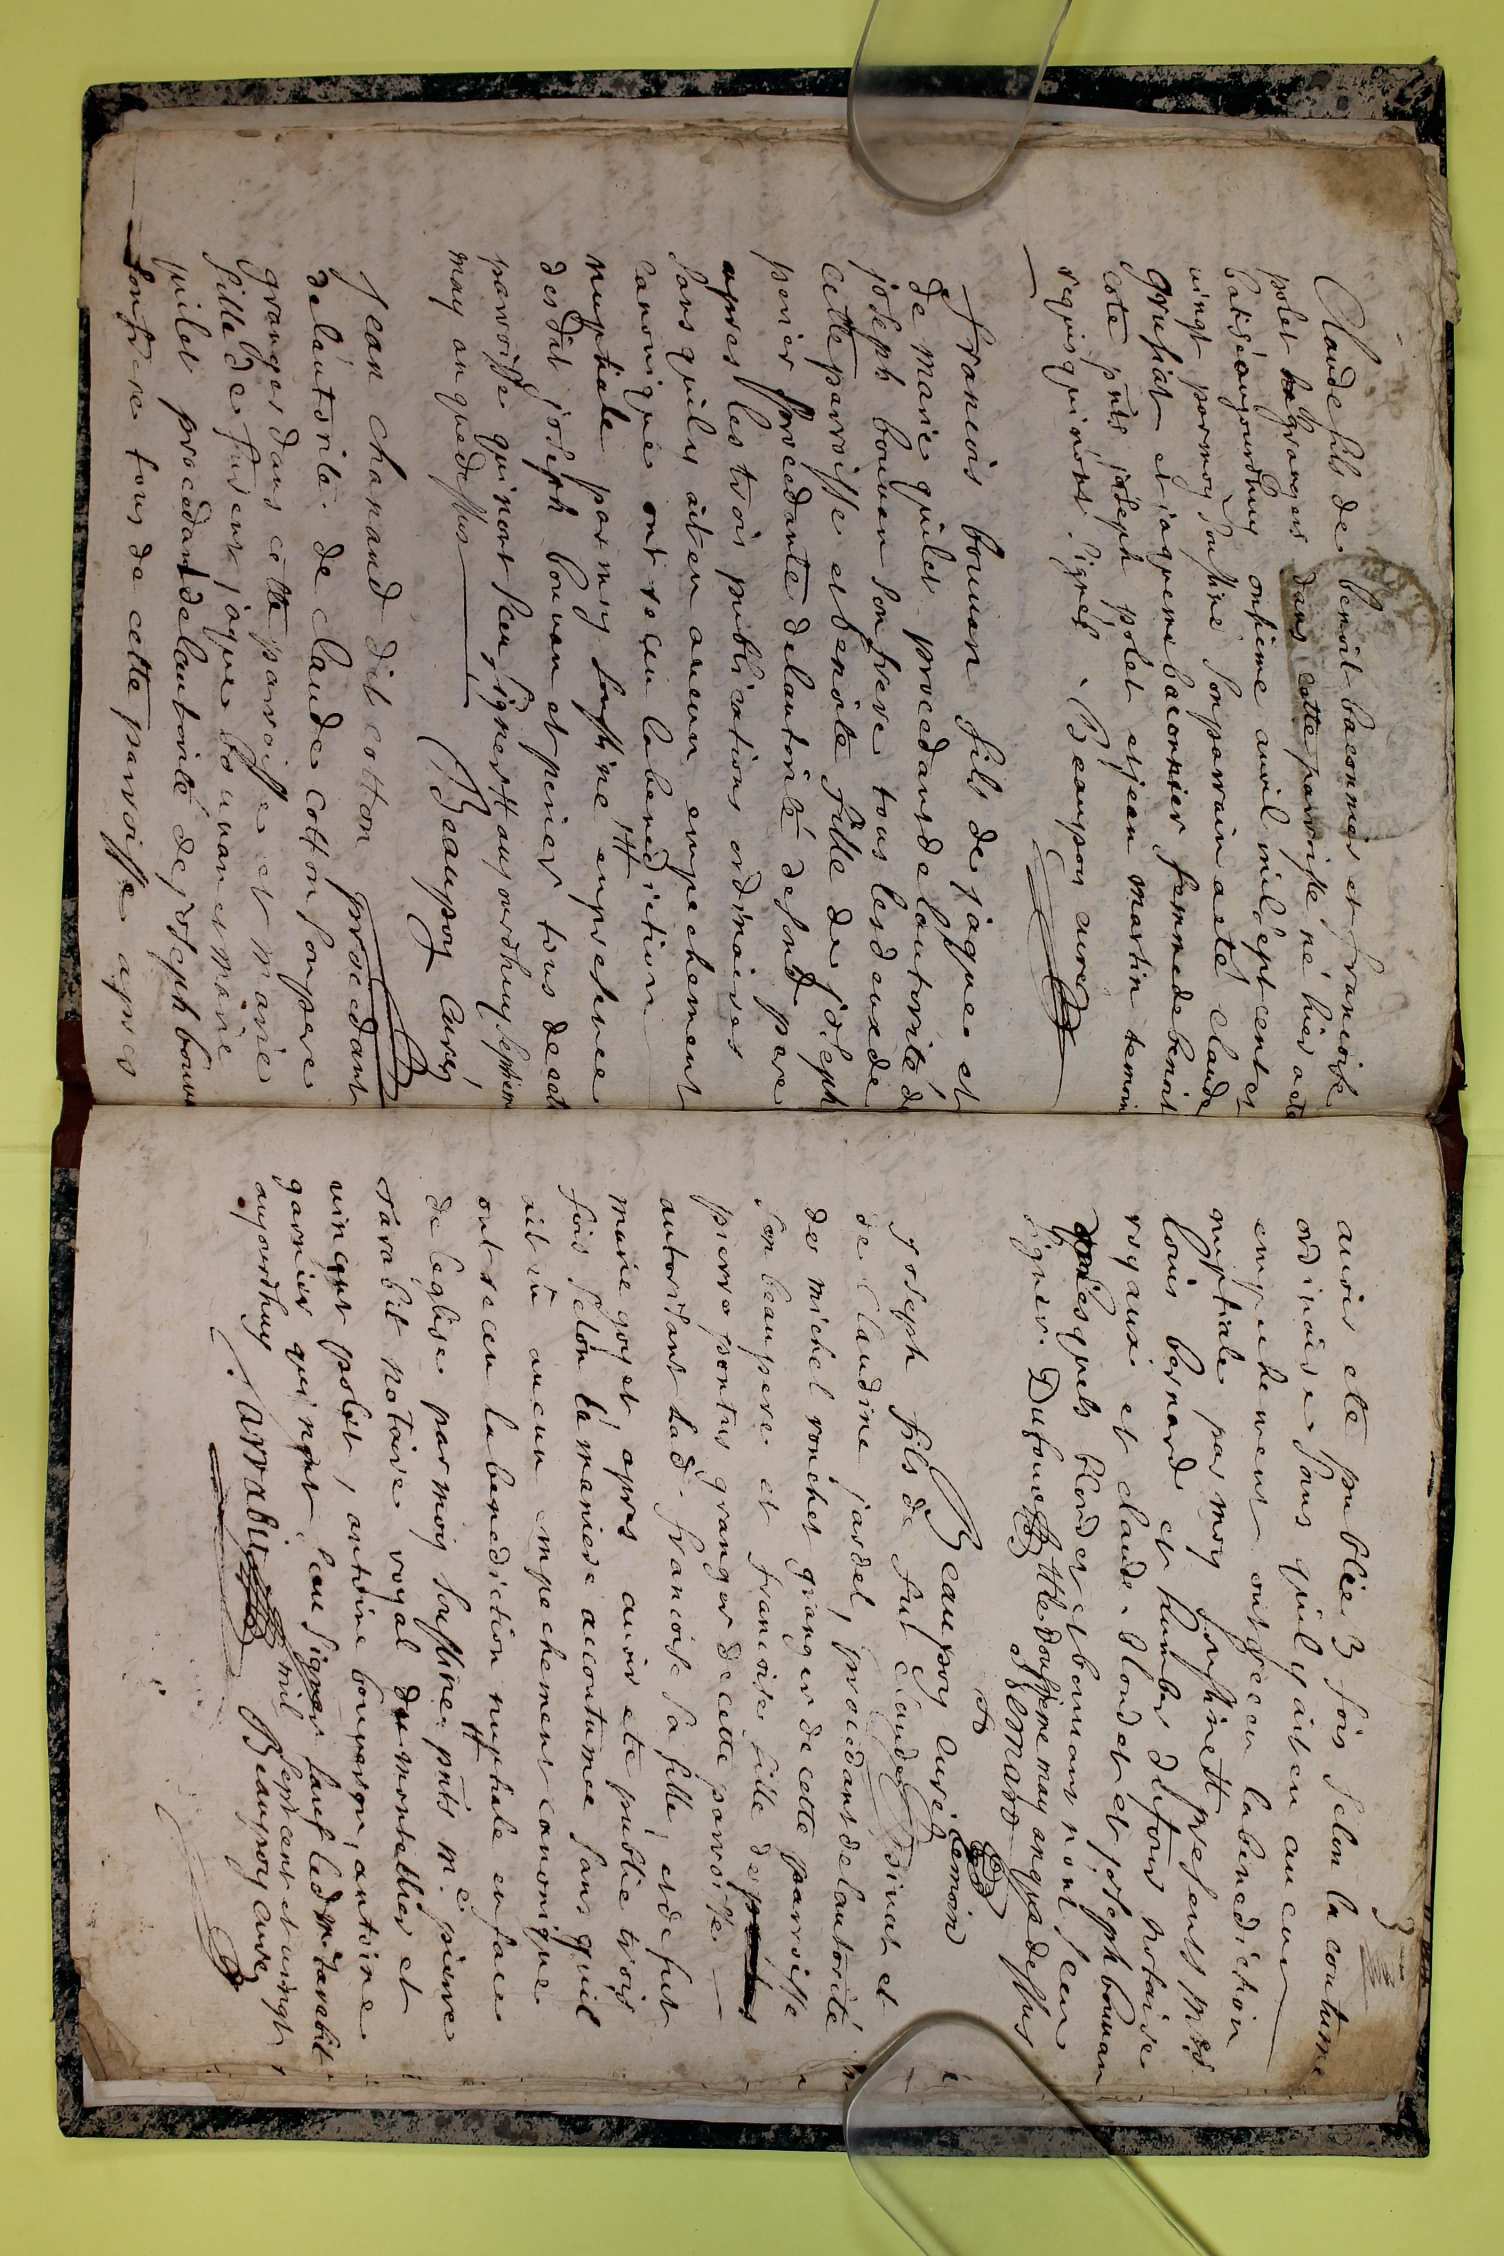 Claude fils de benoit baconnier et francoise
polet granger dans cette parroisse né hier a eté
batisé aujourdhuy onsieme auril mil sept cent et
uingt par moy soussiné son parrain a eté claude
grusiat et iaqueme baconnier femme de benoit
cote pnts joseph polet et jean martin temoin
requis qui nont signés. Beaupoy curé

francois bouuan fils de jaque et
de marie quilet procedant de lautorité de
joseph bouuan son frere tous les deux de
cette parroisse et benoite fille de joseph
perier procedante de lautorité de sond pere
apres les trois publications ordinaires
sans quil y ait eu aucun empechement
canonique ont receu la benediction
nuptiale par moy soussiné en presence
desdit joseph bouuan et perier tous de cette
parroisse qui nont sceu signer # aujourdhuy septiem
may an que dessus
Beaupoy Curé

Jean chanaud dit cotton procedant
de lautorité de claude cotton son pere
granger dans cette parroisse et marie
fille de furent jaque bouuan et marie
quilet procedant de lautorité de joseph bouuan
son frere tous de cette parroisse apres
auoir eté publiée 3 fois selon la coutume
ordinaire sans quil y ait eu aucun
empechement ont receu la benediction
nuptiale par moy soussiné # presents mrs
louis bernard et humber dufour notaire
royaux et claude blondet et joseph bouuan
lesquels blondet et bouuan nont sceu
signer. Dufour # le dousieme may an que dessus
Bernard
temoin
Beaupoy curé

Joseph fils de fut claude et
de claudine jardel, procedant de lautorité
de michel ronchet granger de cette parroisse
son beaupere et francoise fille de
pierre pontus granger de cette parroisse
autorisant lad. francoise sa fille, et de fut
marie goyet, apres auoir eté publié trois
fois selon la maniere accoutumee sans quil
ait eu aucun empechement canonique
ont receu la benediction nuptiale en face
de leglise par moy soussiné # pnts me. pierre
rarabit notaire royal du montellier et
uincent polet, antoine bouuaru, antoine
garnier qui nont sceu signer sauf led m. rarabit
aujourdhuy mil sept cent et uingt
Beaupoy curé